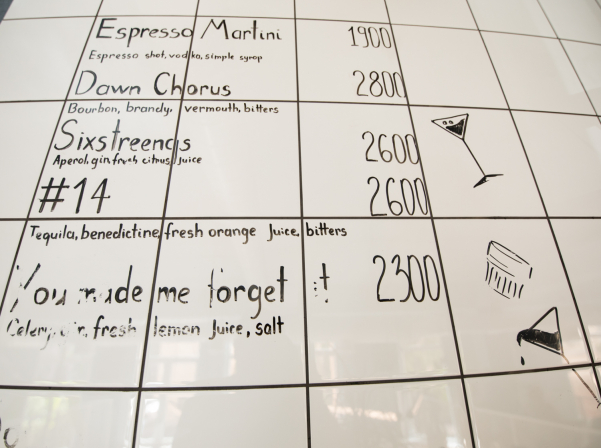 Espresso Martini 1900
Espresso shot, vodka, simple syrop
Dawn Chorus 2800
Bourbon, brandy, vermouth, bitters
Sixstreengs 2600
Aperol, gin fresh citrus juice
#14 2600
Tequila, benedictine, fresh orange Juice, bitters
You made me forget it 2300
Celery, gin, fresh lemon Juice, salt